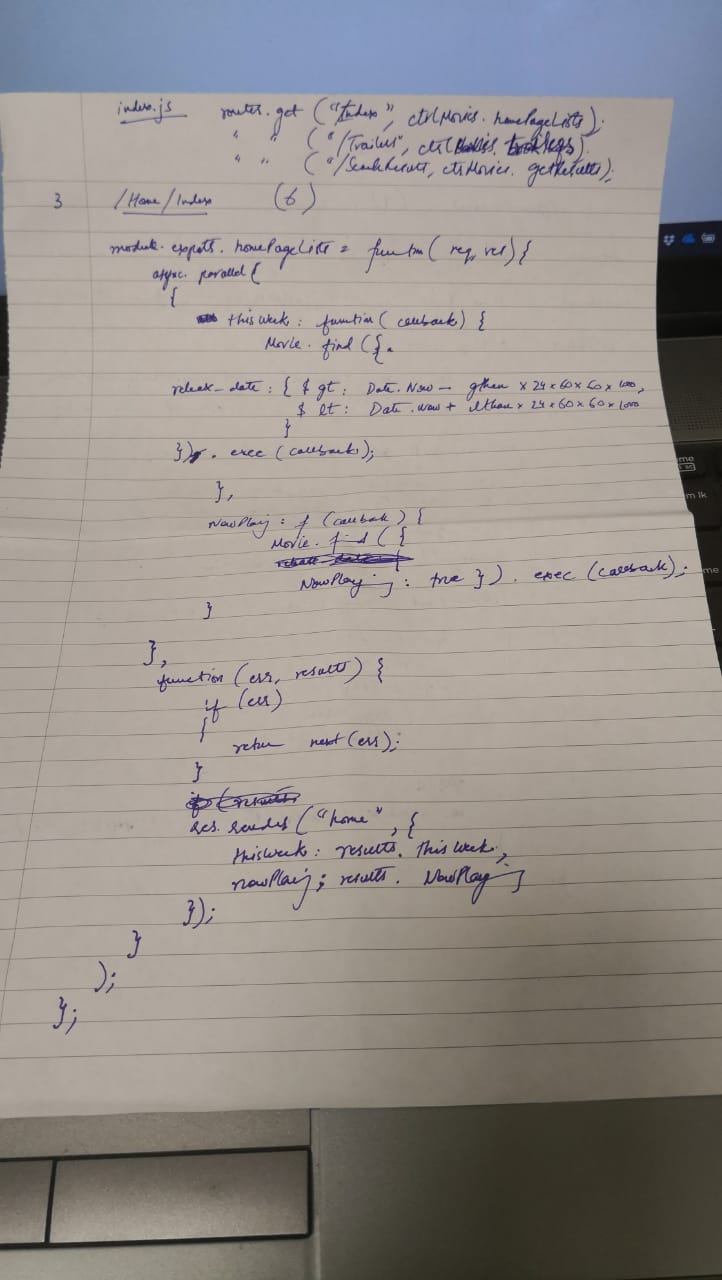 index.js router.get ("Index", ctrlMovies.homePageLists);
" " ("/Trailers", ctrl
" " ("/SearchResult, ctrlMovies. getResults);
3 /Home/Index (6)
module.exports.homePageLists = function(req, res) {
async.parallel(
{
this week : function(callback) {
Movie.find ({
release_date : { $ gt : Date.Now - gthan x 24 x 60 x 60 x 1000,
$ lt : Date.now + lthan x 24 x 60 x 60 x 1000
}
}).exec (callback);
},
NowPlaying : f (callback) {
Movie.find ({
NowPlaying : true }).exec (callback);
}
},
function (err, results) {
if (err)
{
return next (err);
}
res.render ("home", {
thisweek : results.this week,
nowPlaying : results. NowPlaying
});
}
);
};
me
m lk
me